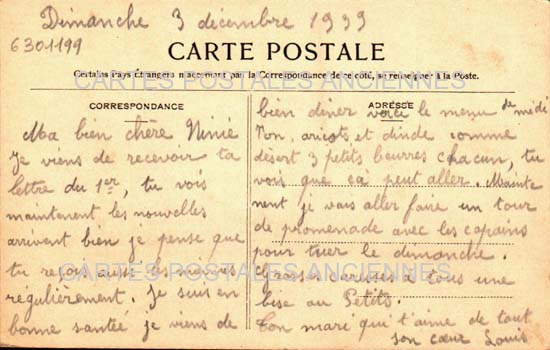 Dimanche 3 décembre 1939
6301199
CARTE POSTALE
Certains Pays étrangers n'acceptant pas la Correspondance de ce côté, se renseigner à la Poste.
CARTES POSTALES ANCIENNES
CORRESPONDANCE
Ma bien chère Ninie
Je viens de recevoir ta
lettre du 1er, tu vois
maintenent les nouvelles
arrivent bien je pense que
tu reçois aussi les miennes
régulièrement. Je suis en
bonne santée je viens de
ADRESSE
bien diner voici le menu de midi
Ton, aricots et dinde comme
désert 3 petits beurres chacun, tu
vois que ça peut aller. Mainte
nent je vais aller faire un tour
de promenade avec les copains
pour tuer le dimanche.
Grosses caresses à tous une
bise au Petits.
Ton mari qui t'aime de tout
son cœur Louis
CARTES POSTALES ANCIENNES